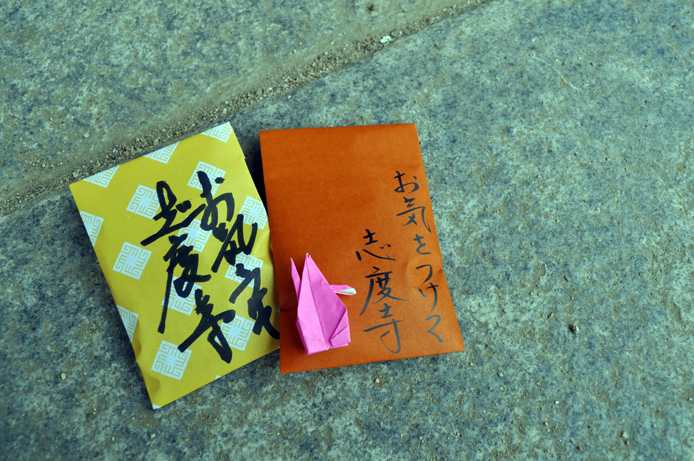 お気
志度寺
お気をつけて
志度寺